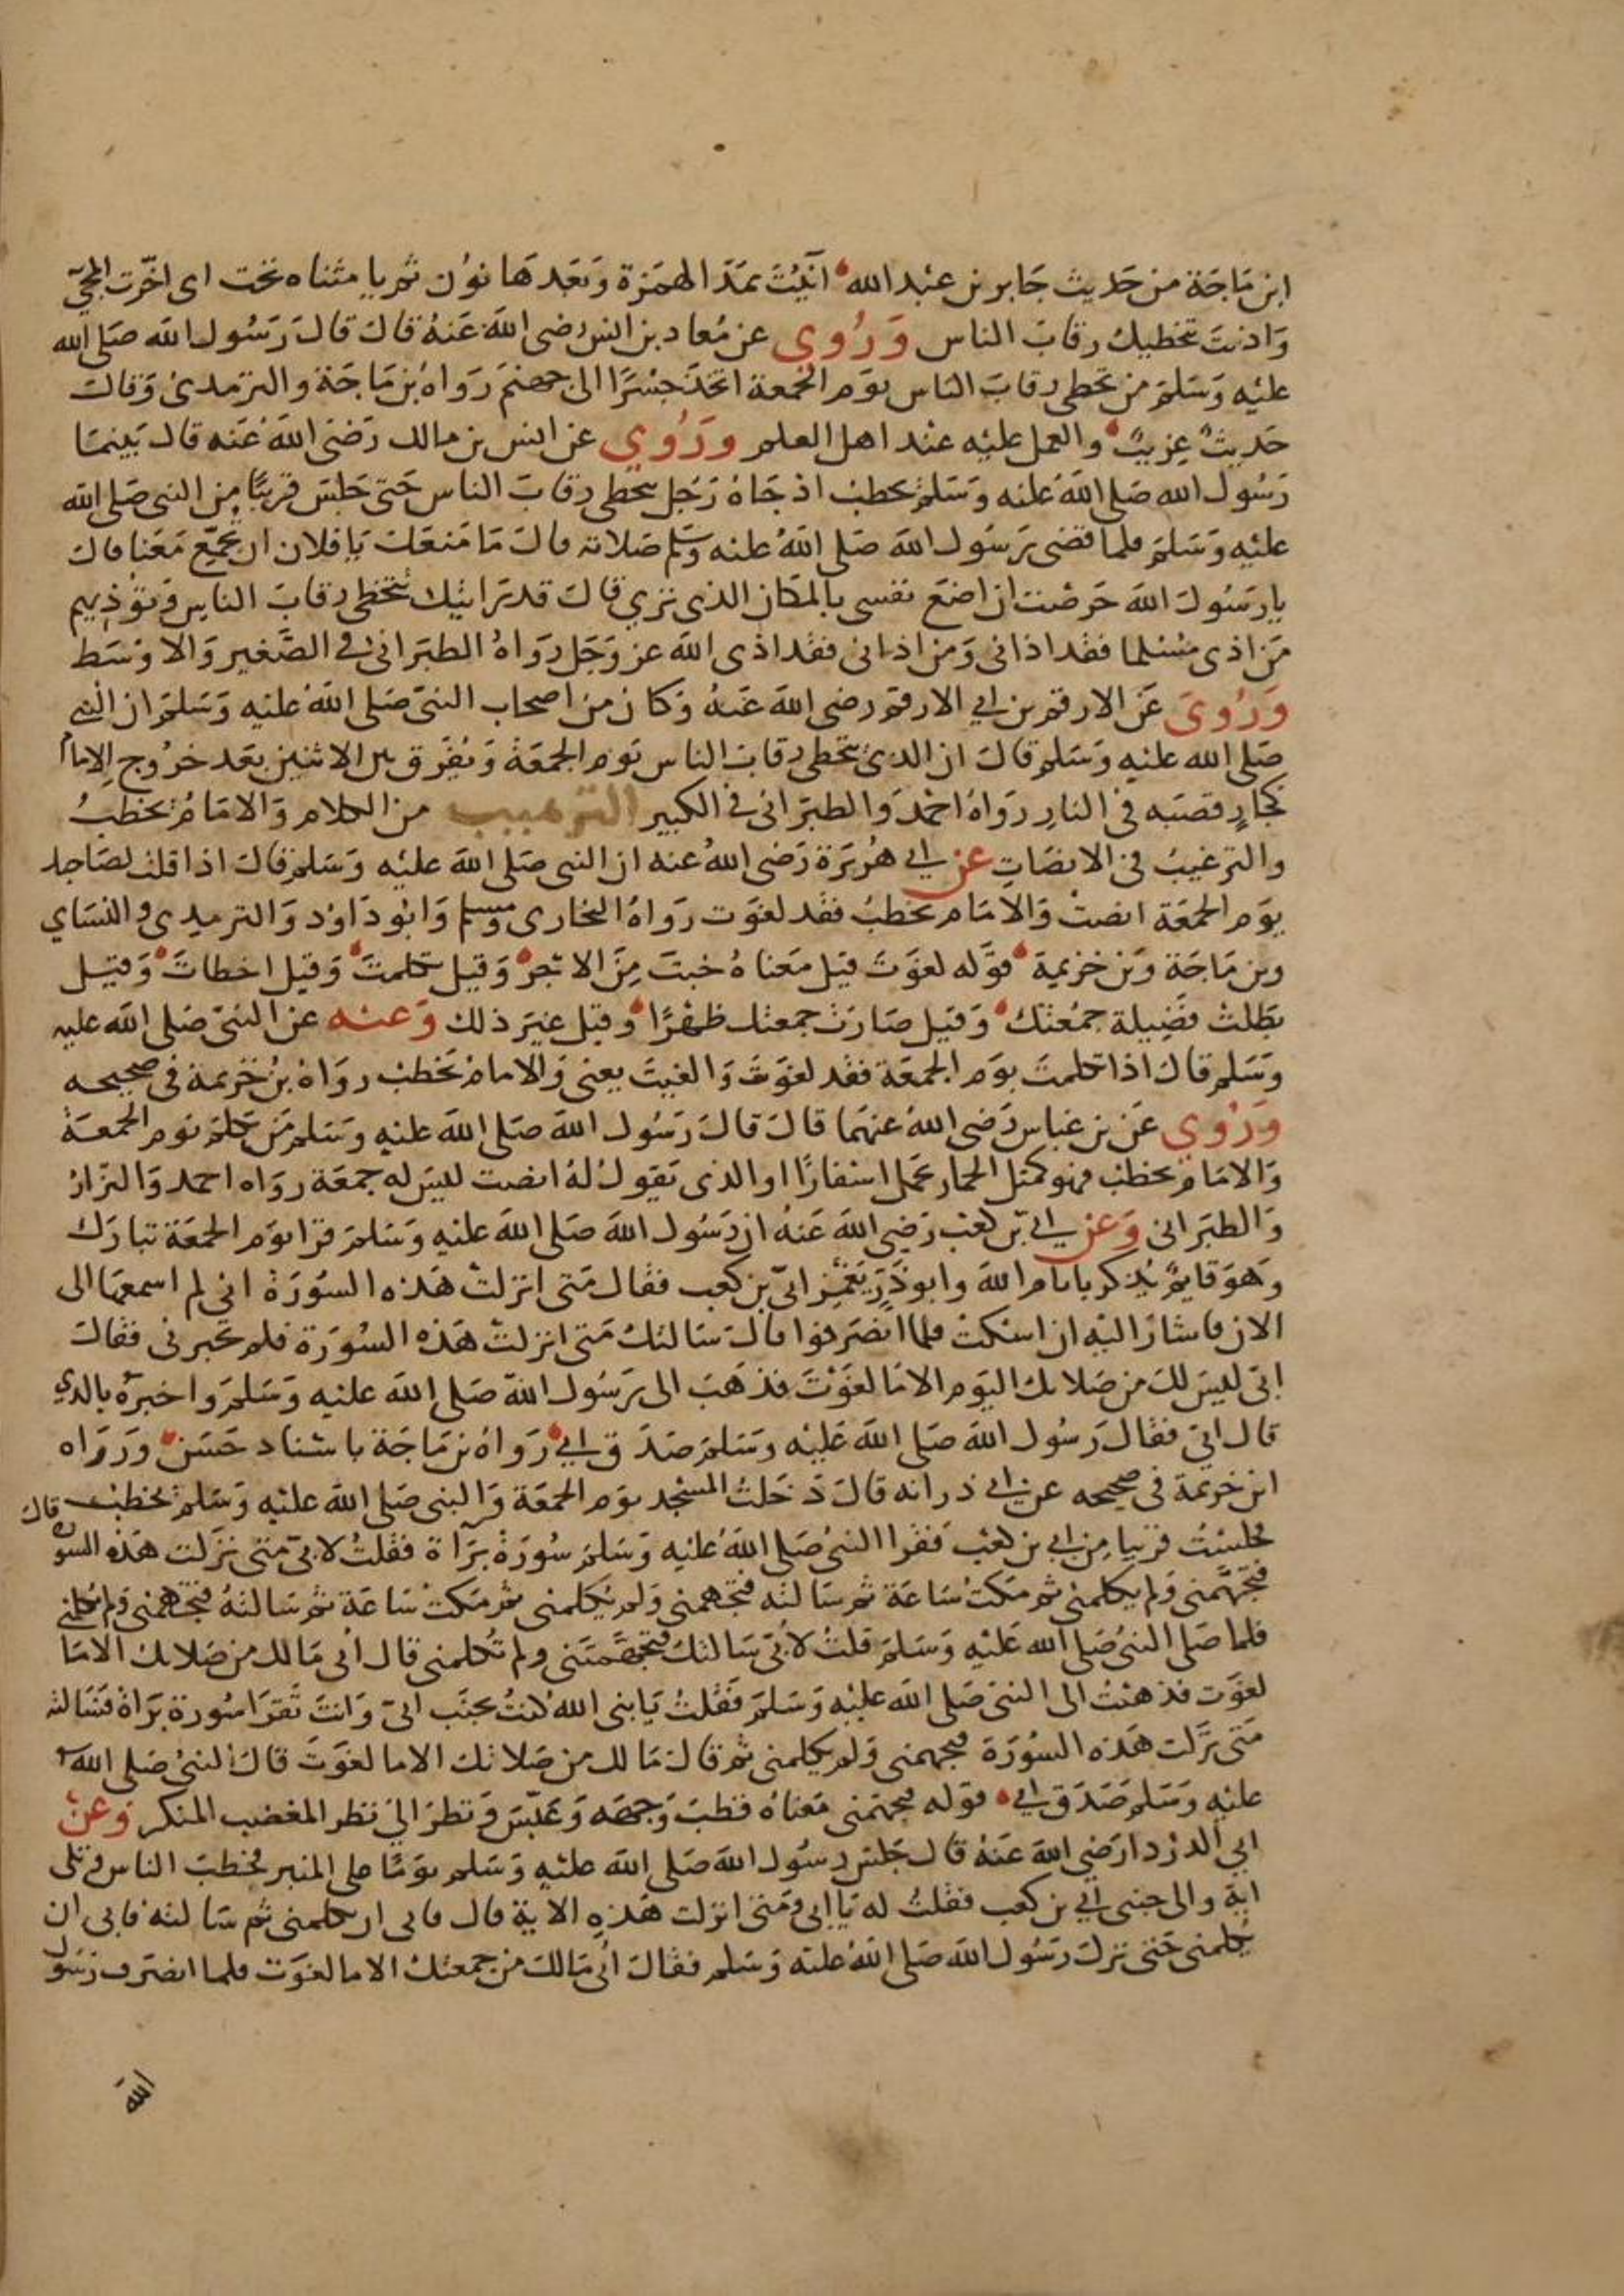 ابن ماجة من حديث جابر بن عبد الله آنيت بمد الهمزة وبعدها نون ثم يا مثناه تحت اى اخرت المجي
واذيت بتخطيك رقاب الناس وروي عن معاد بن انس رضى الله عنه قال قال رسول الله صلى الله
عليه وسلم من تخطى رقاب الناس يوم الجمعة اتخذ جسرا الى جهنم رواه بن ماجة والترمدى وقال
حديث غريب والعمل عليه عند اهل العلم وروي عن انس بن مالك رضى الله عنه قال بينما
رسول الله صلى الله عليه وسلم يخطب اذ جاه رجل يتخطى رقاب الناس حتى جلس قريبا من النبى صلى الله
عليه وسلم فلما قضى رسول الله صلى الله عليه وسلم صلاته قال ما منعك يا فلان ان تجمع معنا قال
يا رسول الله حرصت ان اضع نفسى بالمكان الذى ترى قال قد رايتك تتخطى رقاب الناس وتؤذيهم
من اذى مسلما فقد اذانى ومن اذانى فقد اذى الله عز وجل رواه الطبرانى فى الصغير والاوسط
وروى عن الارقم بن ابي الارقم رضى الله عنه وكان من اصحاب النبى صلى الله عليه وسلم ان النبي
صلى الله عليه وسلم قال ان الذى يتخطى رقاب الناس يوم الجمعة ويفرق بين الاثنين بعد خروج الامام
كجار قصبه فى النار رواه احمد والطبرانى فى الكبير الترهيب من الكلام والامام يخطب
والترغيب فى الانصات عن ابي هريرة رضى الله عنه ان النبى صلى الله عليه وسلم قال اذا قلت لصاحبك
يوم الجمعة انصت والامام يخطب فقد لغوت رواه البخارى ومسلم وابو داود والترمدى والنساي
وبن ماجة وبن خزيمة قوله لغوت قيل معناه خبت من الاجر وقيل تكلمت وقيل اخطات وقيل
بطلت فضيلة جمعتك وقيل صارت جمعتك ظهرا وقيل غير ذلك وعنه عن النبى صلى الله عليه
وسلم قال اذا تكلمت يوم الجمعة فقد لغوت والغيت يعنى والامام يخطب رواه بن خزيمة فى صحيحه
وروي عن بن عباس رضى الله عنهما قال قال رسول الله صلى الله عليه وسلم من تكلم يوم الجمعة
والامام يخطب فهو كمثل الحمار يحمل اسفارا والذى يقول له انصت ليس له جمعة رواه احمد والبزار
والطبرانى وعن ابي بن كعب رضي الله عنه ان رسول الله صلى الله عليه وسلم قرا يوم الجمعة تبارك
وهو قايم يذكر بايام الله وابو ذر يغمز ابي بن كعب فقال متى انزلت هذه السورة انى لم اسمعها الى
الان فاشار اليه ان اسكت فلما انصرفوا قال سالتك متى انزلت هذه السورة فلم تخبرنى فقال
ابي ليس لك من صلاتك اليوم الا ما لغوت فذهب الى رسول الله صلى الله عليه وسلم واخبره بالذي
قال ابي فقال رسول الله صلى الله عليه وسلم صدق ابي رواه بن ماجة باسناد حسن ورواه
ابن خزيمة فى صحيحه عن ابي ذر انه قال دخلت المسجد يوم الجمعة والنبى صلى الله عليه وسلم يخطب قال
فجلست قريبا من ابي بن كعب فقرا النبى صلى الله عليه وسلم سورة براة فقلت لابي متى نزلت هذه السورة
فتجهمنى ولم يكلمنى ثم مكثت ساعة ثم سالته فتجهمنى ولم يكلمنى ثم مكثت ساعة ثم سالته فتجهمنى ولم يكلمني
فلما صلى النبى صلى الله عليه وسلم قلت لابي سالتك فتجهمتنى ولم تكلمنى قال ابي مالك من صلاتك الا ما
لغوت فذهبت الى النبى صلى الله عليه وسلم فقلت يا نبى الله كنت بجنب ابي وانت تقرا سورة براة فسالته
متى نزلت هذه السورة فتجهمنى ولم يكلمنى ثم قال مالك من صلاتك الا ما لغوت قال النبى صلى الله
عليه وسلم صدق ابي قوله فتجهمنى معناه قطب وجهه وعبس ونظر الي نظر المغضب المنكر وعن
ابي الدردا رضى الله عنه قال جلس رسول الله صلى الله عليه وسلم يوما على المنبر فخطب الناس وتلى
اية والى جنبى ابي بن كعب فقلت له يا ابي ومتى انزلت هذه الاية قال فابى ان يكلمنى ثم سالته فابى ان
يكلمنى حتى نزل رسول الله صلى الله عليه وسلم فقال ابي مالك من جمعتك الا ما لغوت فلما انصرف رسول
الله